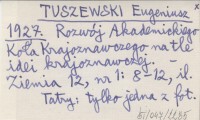 TUSZEWSKI Eugeniusz
1927. Rozwój Akademickiego
Koła Krajoznawczego na tle
idei krajoznawczej. -
Ziemia 12, nr 1: 8-12, il.
Tatry: tylko jedna z fot.